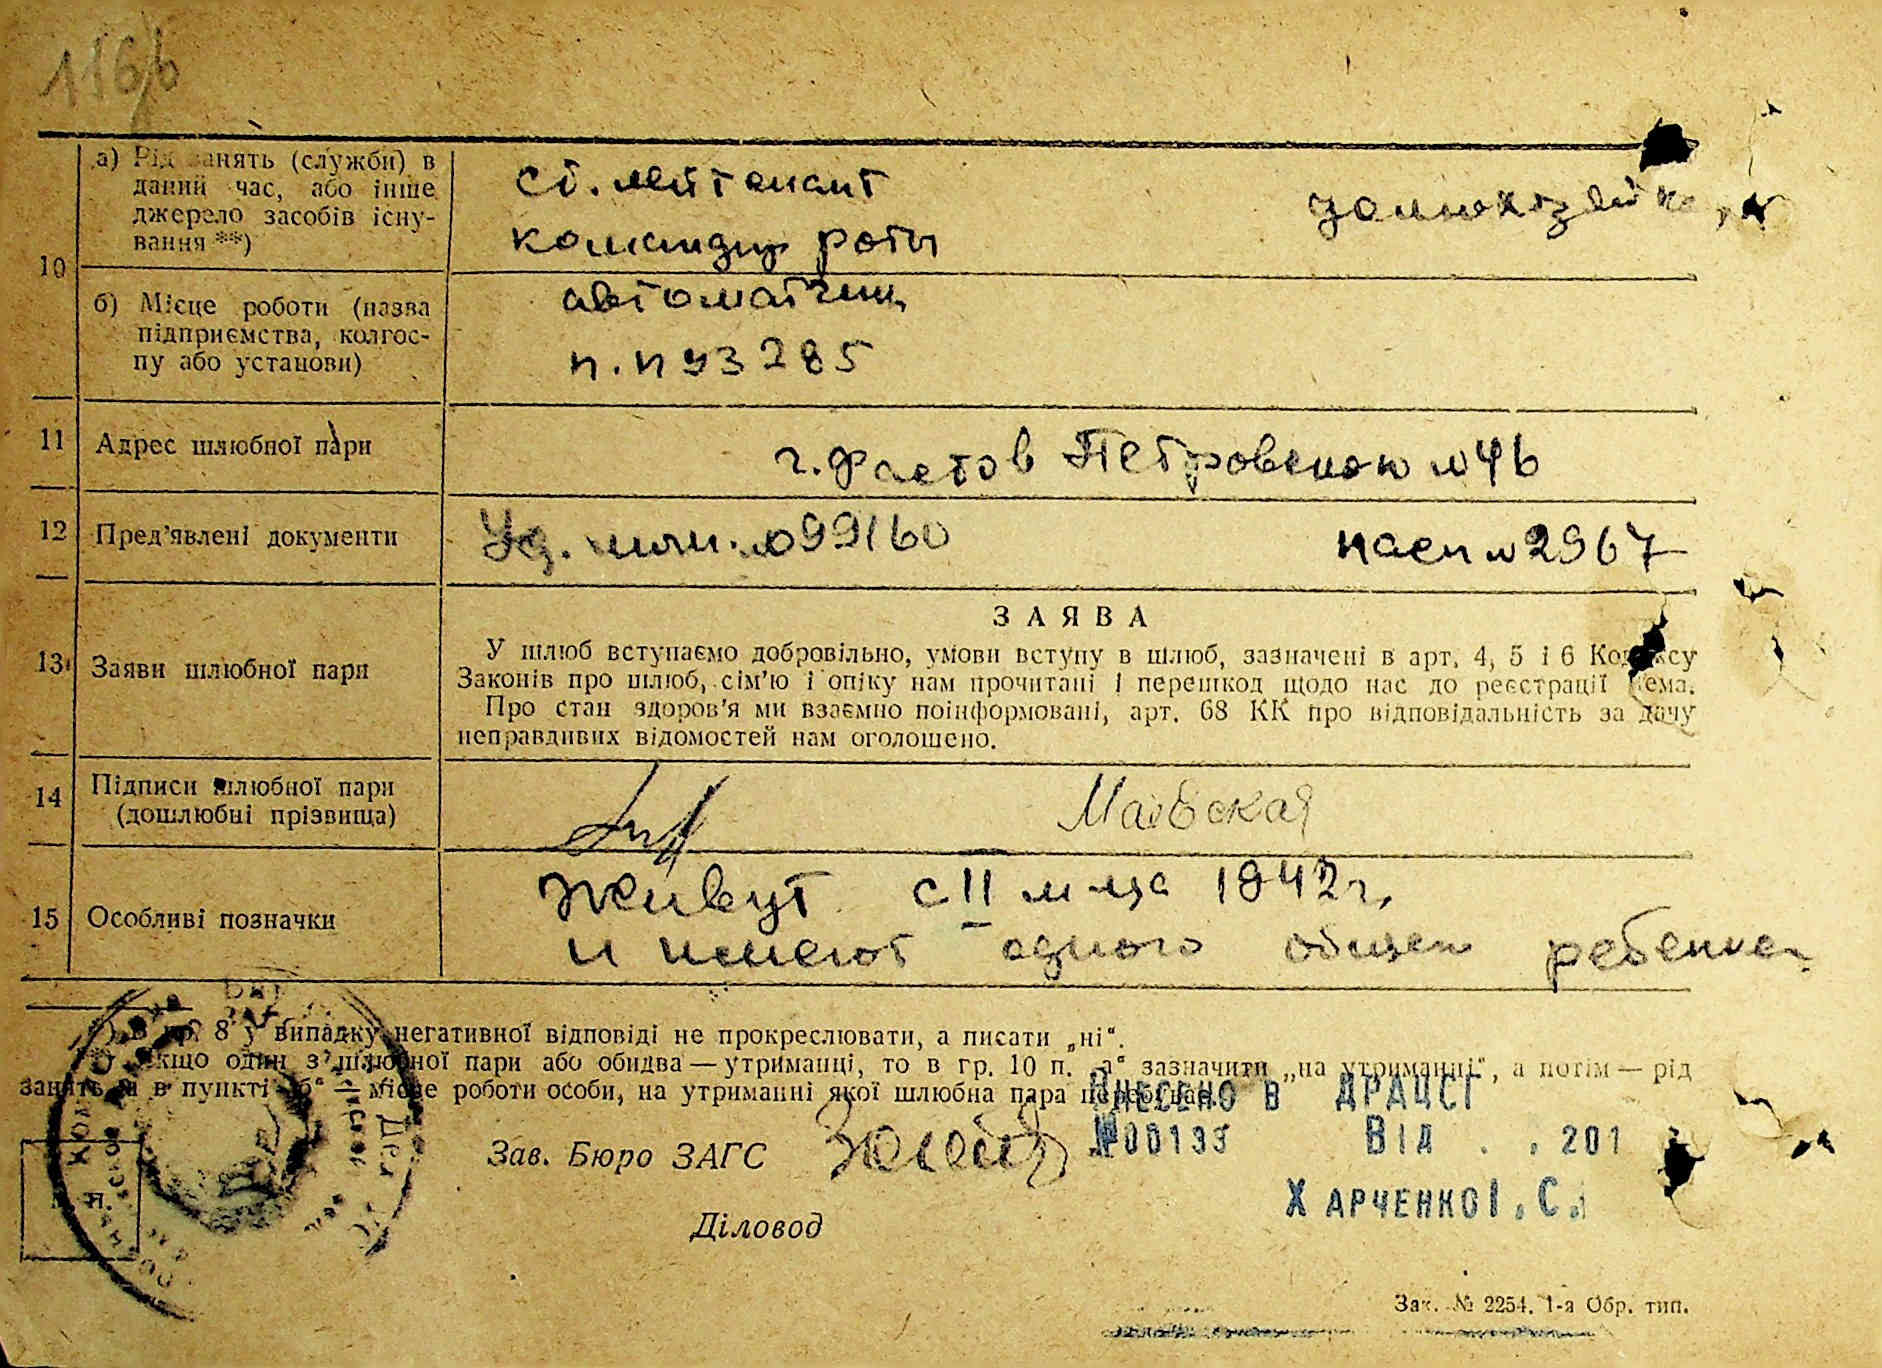 116b
10
а) Рід занять (служби) в даний час, або інше джерело засобів існування **)
ст. лейтенант
командир роты
домохозяйка
б) Місце роботи (назва підприємства, колгоспу або установи)
автоматчиц
п.п 93285
11 Адрес шлюбної пари
г. Фастов Петровского № 46
12 Пред'явлені документи
Уд. личн. № 099160 пасп № 2967
ЗАЯВА
13 Заяви шлюбної пари
У шлюб вступаємо добровільно, умови вступу в шлюб, зазначені в арт. 4, 5 і 6 Кодексу
Законів про шлюб, сім'ю і опіку нам прочитані і перешкод щодо нас до реєстрації нема.
Про стан здоров'я ми взаємно поінформовані, арт. 68 КК про відповідальність за дачу
неправдивих відомостей нам оголошено.
14 Підписи шлюбної пари (дошлюбні прізвища)
Маевская
15 Особливі позначки
Живут с II м-ца 1942 г.
и имеют одного общего ребенка
*) В гр. 8 у випадку негативної відповіді не прокреслювати, а писати „ні“.
**) Якщо один з шлюбної пари або обидва — утриманці, то в гр. 10 п. „а“ зазначити „на утриманні“, а потім — рід
занять, а в пункті „б“ — місце роботи особи, на утриманні якої шлюбна пара перебуває.
ВНЕСЕНО В ДРАЦСГ
№00133 ВІД . . 201
Зав. Бюро ЗАГС
ХАРЧЕНКО І. С.
Діловод
М. П.
Зак. № 2254. 1-а Обр. тип.